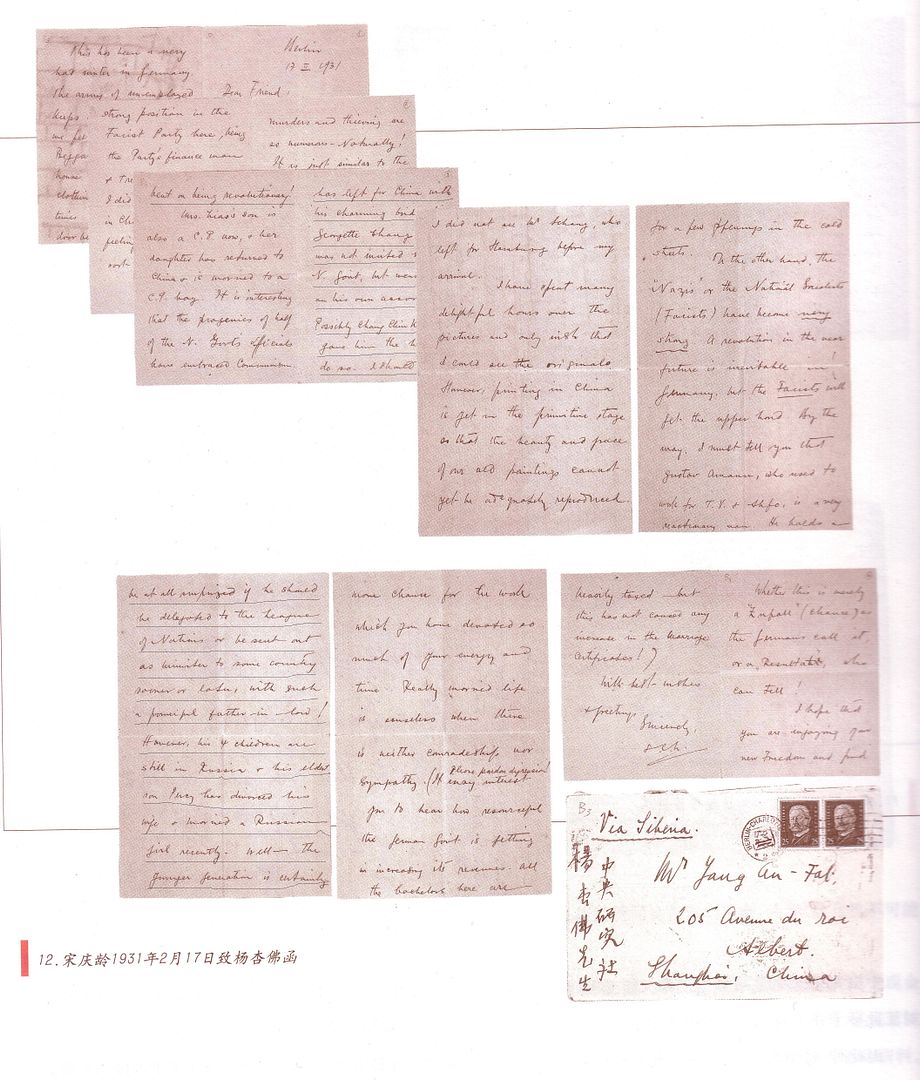 This has been a very
bad winter in Germany
the armies of unemployed
Berlin
17 II 1931
Dear Friend,
strong position in the
Facist Party here, being
the Party's finance man
I did
in Ch
murders and thieving are
so numerous - Naturally!
It is just similar to the
bent on being revolutionary!
Mrs. son is
also a C.P. now, & her
daughter has returned to
China & is married to a
C.P. boy. It is interesting
that the progenies of half
of the N. Govt's officials
have embraced Communism
has left for China with
his charming
Georgette Chang
was not invited
N. Govt, but
on his own
Possibly Chang
gave him the
do so. I should
I did not see Mr Schang, who
left for Hamburg before my
arrival.
I have spent many
delightful hours over the
pictures and only wish that
I could see the originals
However, printing in China
is yet in the primitive stage
so that the beauty and grace
of our old paintings cannot
yet be adequately reproduced
for a few pfennigs in the cold
streets. On the other hand, the
"Nazis" or the National Socialists
(Facists) have become very
strong A revolution in the near
future is inevitable in
Germany, but the Facists will
get the upper hand. By the
way, I must tell you that
Gustav Amann, who used to
work for T.V. & , is a very
reactionary man. He holds a
be at all surprized if he should
be delegated to the League
of Nations or be sent out
as minister to some country
sooner or later, with such
a powerful father-in-law!
However, his 4 children are
still in Russia & his eldest
son Percy has divorced his
wife & married a Russian
girl recently. Well - the
younger generation is certainly
more chance for the work
which you have devoted so
much of your energy and
time. Really married life
is senseless when there
is neither comradeship nor
sympathy. (Please pardon digression!
It may interest
you to hear how resourceful
the German Govt. is getting
in increasing its revenues. All
the bachelors here are
heavily taxed - but
this has not caused any
increase in the marriage
certificates!)
With best wishes
& greetings
Sincerely
Whether this is merely
a "Zufall" (chance) as
the Germans call it
or a Resultate, who
can tell!
I hope that
you are enjoying your
new Freedom and find
B3
Via Siberia.
25
25
Mr Yang An-Fal,
205 Avenue du roi
Albert.
Shanghai, China
中央研究社
楊杏佛先生
12.宋庆龄1931年2月17日致杨杏佛函